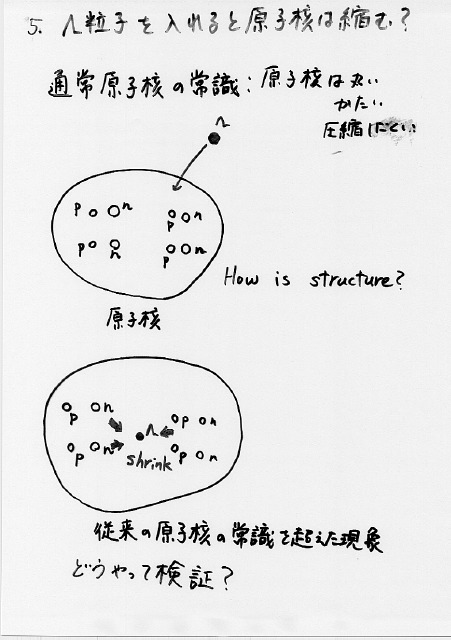 5. Λ粒子を入れると原子核は縮む?
通常原子核の常識:原子核は丸い
かたい
圧縮しにくい
Λ
p n p n
p n p n
How is structure?
原子核
p n p n
Λ
p n p n
shrink
従来の原子核の常識を超えた現象
どうやって検証?